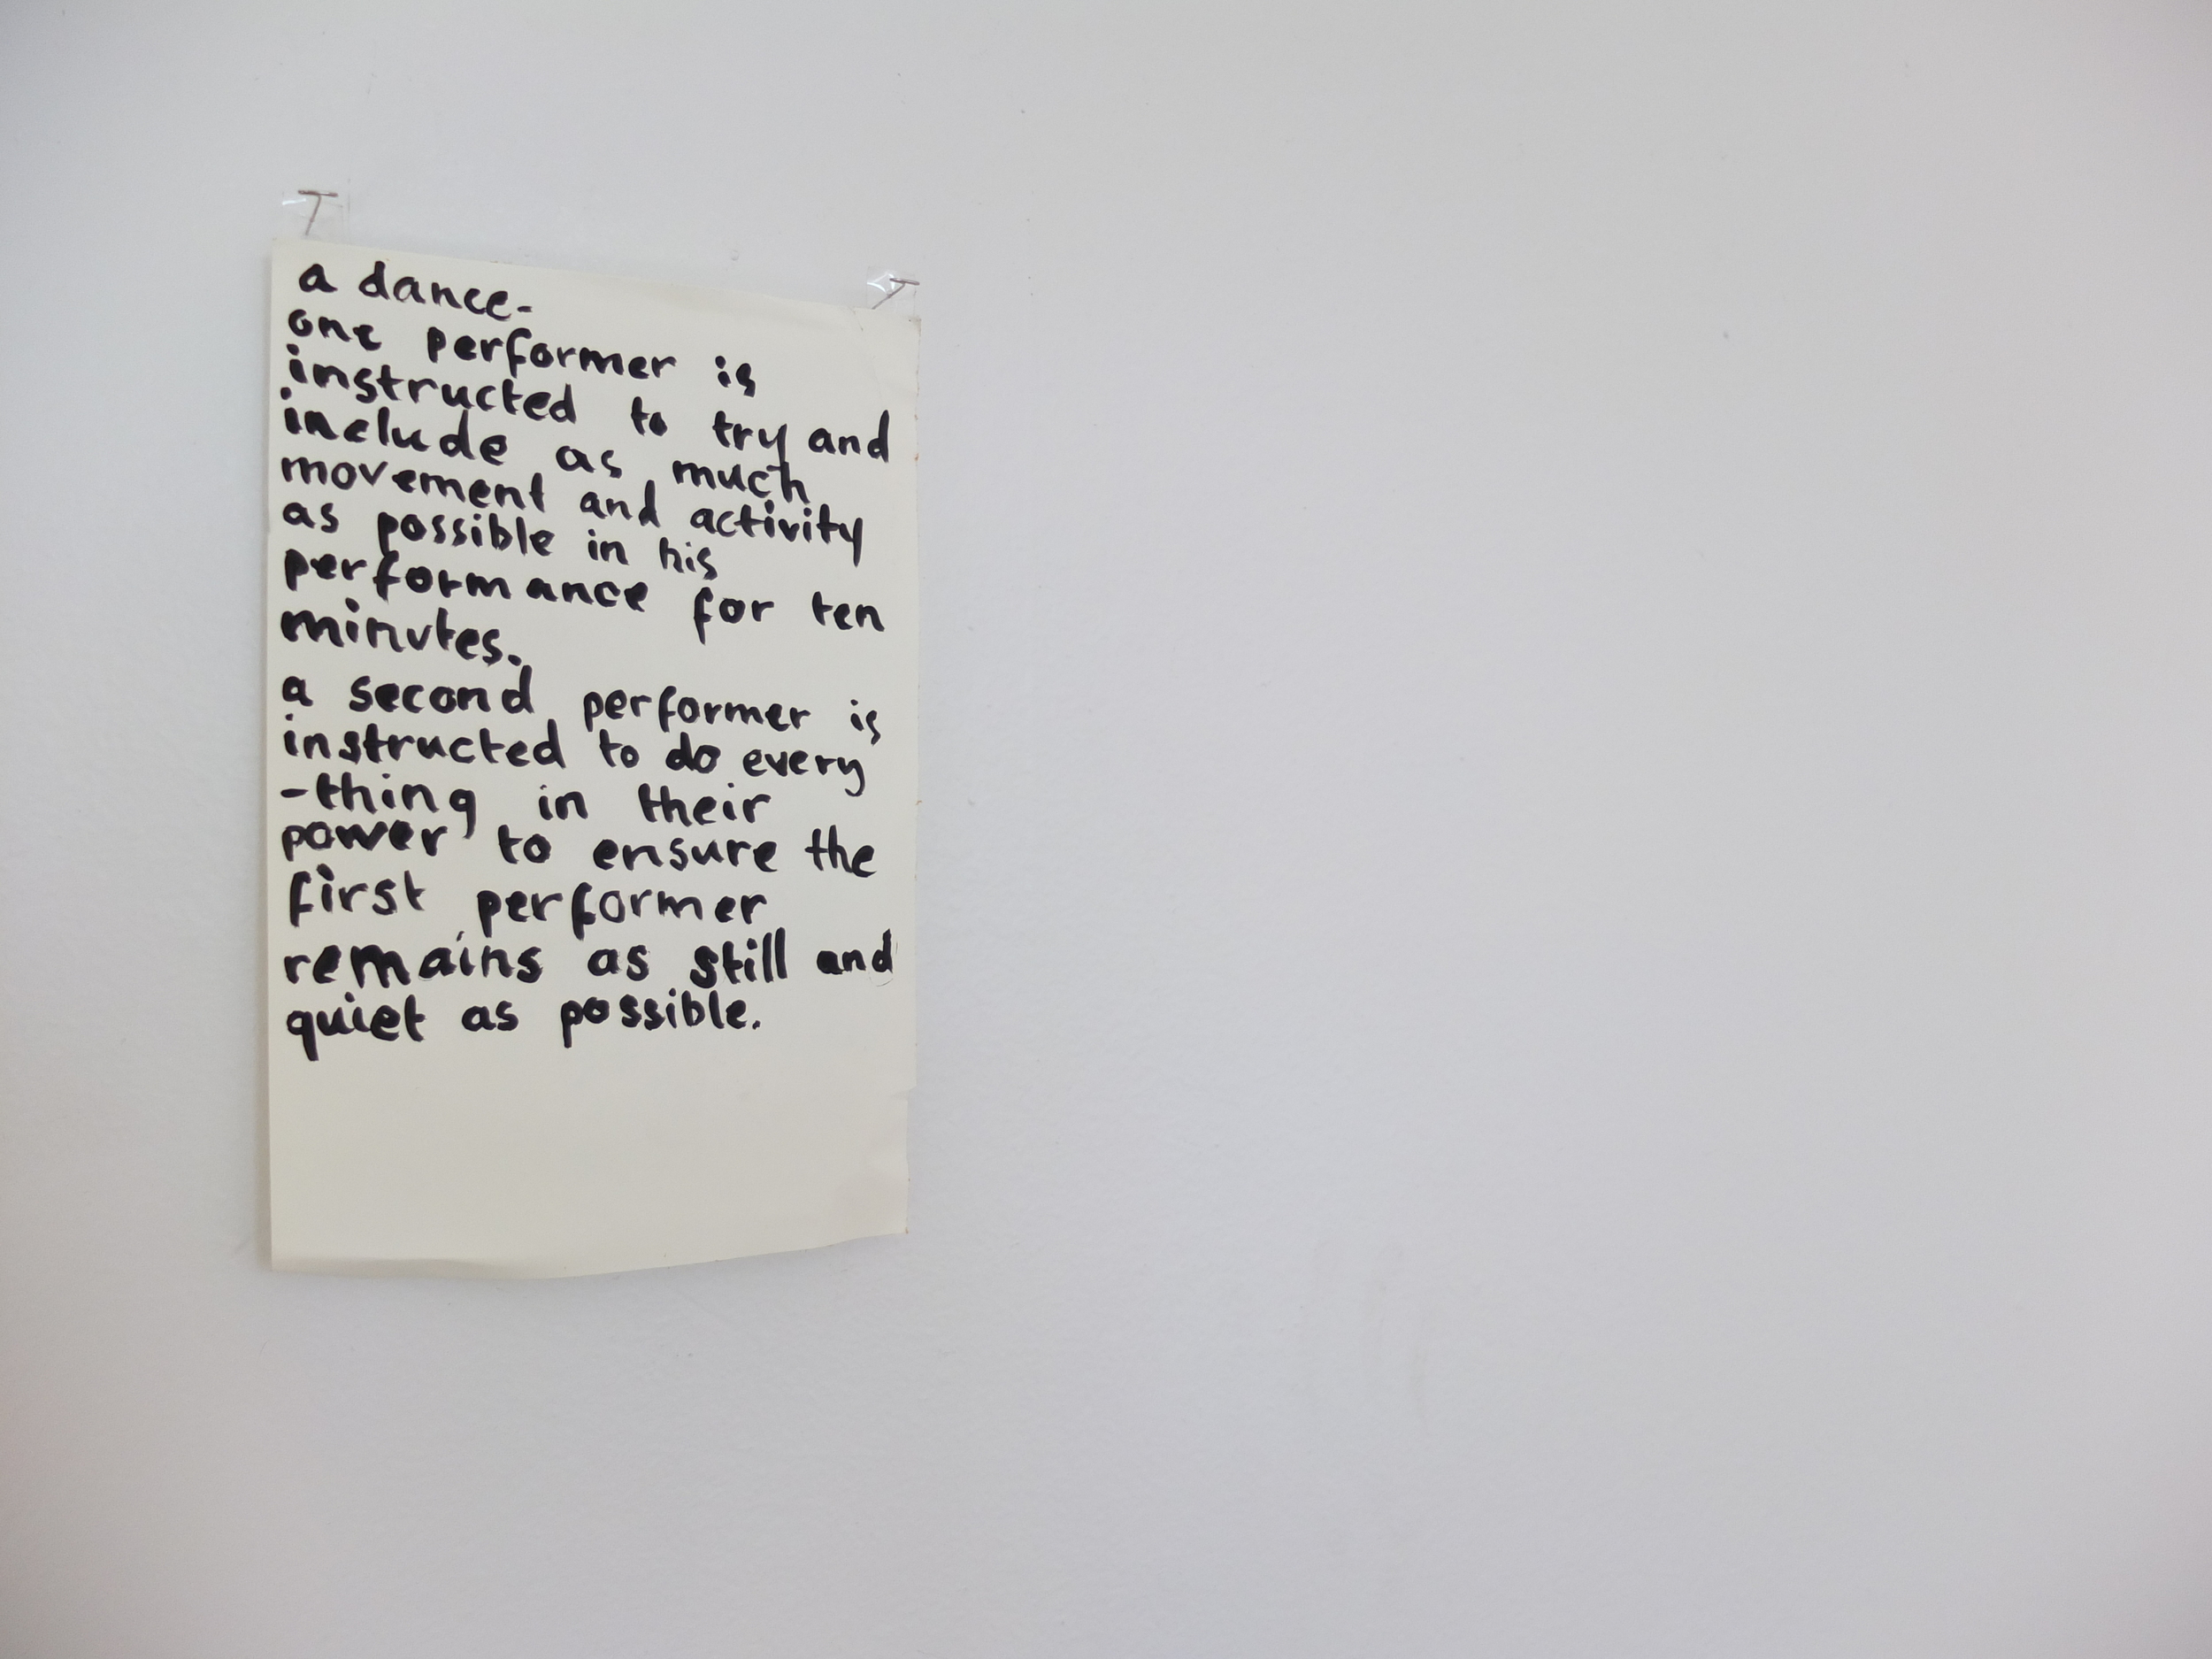 a dance-
one performer is
instructed to try and
include as much
movement and activity
as possible in his
performance for ten
minutes.
a second performer is
instructed to do every
-thing in their
power to ensure the
first performer
remains as still and
quiet as possible.